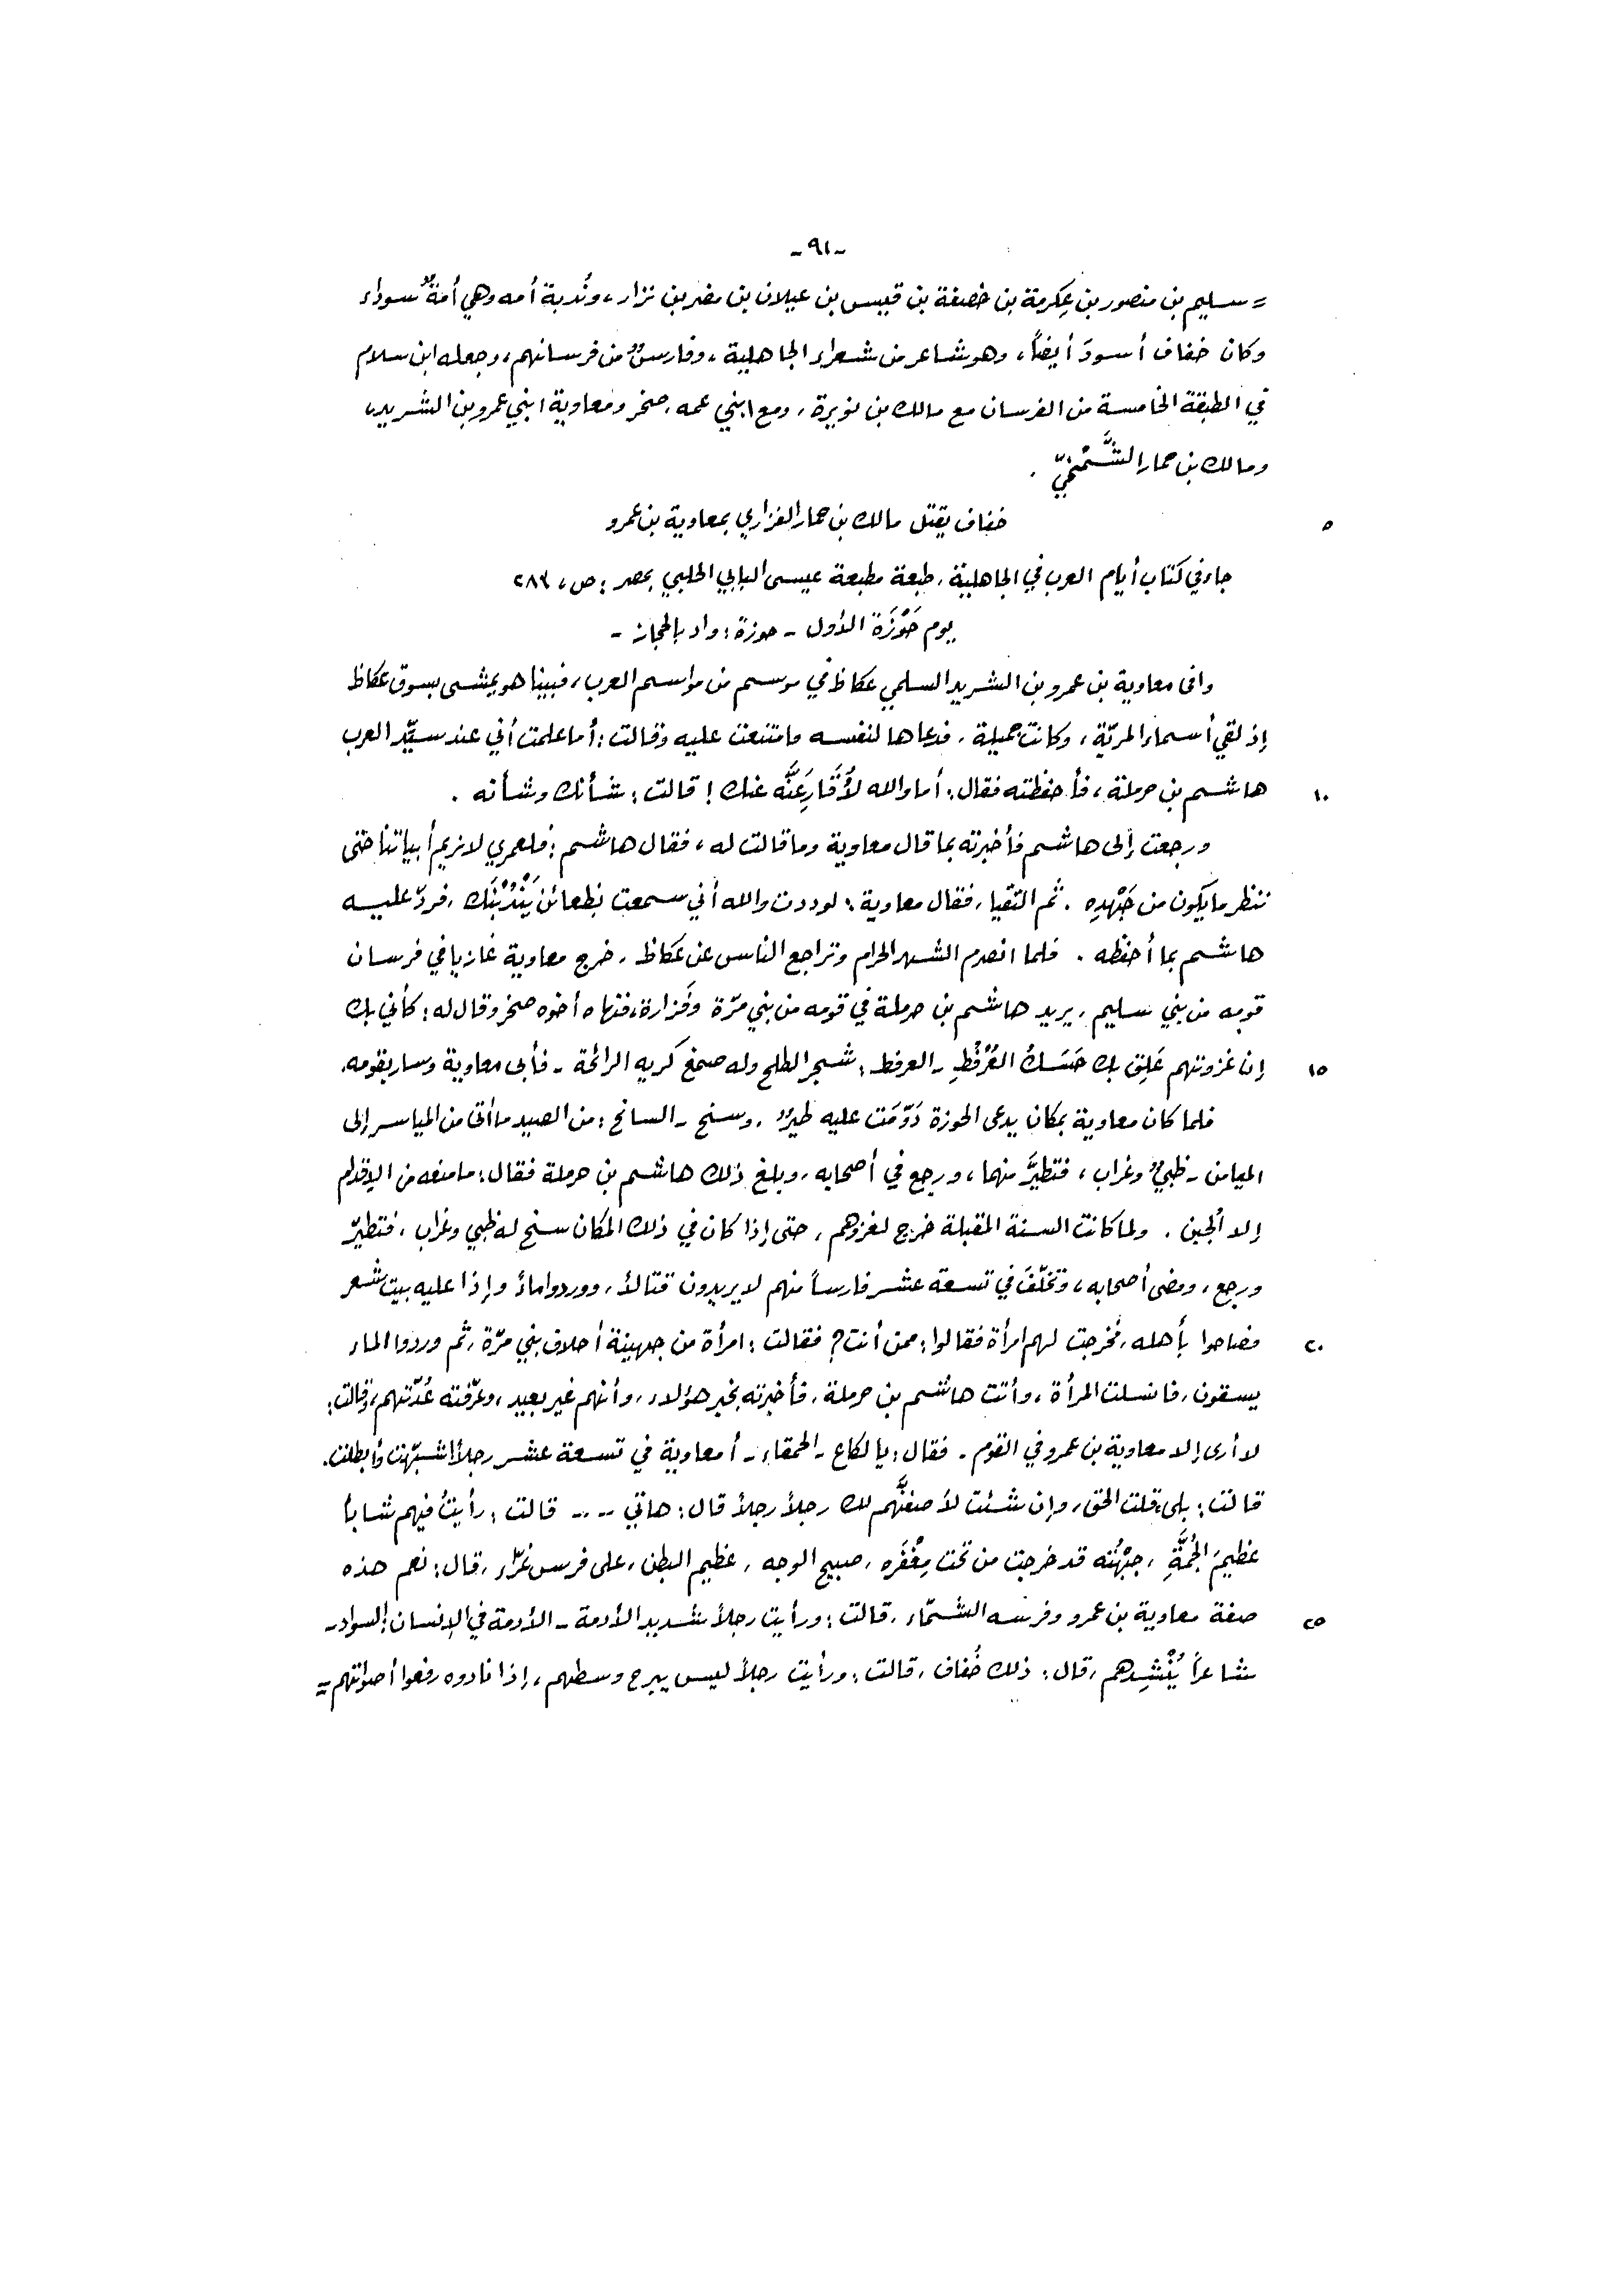 -٩١-
= سليم بن منصور بن عِكرمة بن خصفة بن قيس بن عيلان بن مضر بن نزار، ونُدبة أمه وهي أمةٌ سوداء
وكان خفاف أسودَ أيضاً، وهو شاعر من شعراء الجاهلية، وفارسٌ من فرسانهم، وجعله ابن سلام
في الطبقة الخامسة من الفرسان مع مالك بن نويرة، ومع ابني عمه، صخر ومعاوية ابني عمرو بن الشريد،
ومالك بن حمار الشَّمْخيّ .
٥ خفاف يقتل مالك بن حمار الفزاري بمعاوية بن عمرو
جاء في كتاب أيام العرب في الجاهلية، طبعة مطبعة عيسى البابي الحلبي بمصر : ص، ٢٨٤
يوم حَوْزَة الأول - حوزة : واد بالحجاز -
وافى معاوية بن عمرو بن الشريد السلمي عكاظ في موسم من مواسم العرب، فبينا هو يمشي بسوق عكاظ
إذ لقي أسماء المريّة، وكانت جميلة، فدعاها لنفسه فامتنعت عليه وقالت : أما علمت أني عند سيّد العرب
١٠ هاشم بن حرملة، فأحفظته فقال : أما والله لأُقَارِعَنَّه عنك ! قالت : شأنك وشأنه .
ورجعت إلى هاشم فأخبرته بما قال معاوية وما قالت له، فقال هاشم : فلعمري لا نريم أبياتنا حتى
ننظر ما يكون من جَهْدِه . ثم التقيا، فقال معاوية : لوددت والله أني سمعت بظعائن يَنْدُبْنَك، فردّ عليه
هاشم بما أحفظه . فلما انصرم الشهر الحرام وتراجع الناس عن عكاظ، خرج معاوية غازيا في فرسان
قومه من بني سليم، يريد هاشم بن حرملة في قومه من بني مرّة وفَزارة، فنهاه أخوه صخر وقال له : كأني بك
١٥ إن غزوتهم عَلِقَ بك حَسَكُ العُرْفُطِ - العرفط : شجر الطلح وله صمغ كريه الرائحة - فأبى معاوية وسار بقومه.
فلما كان معاوية بمكان يدعى الحوزة دَوّمَت عليه طيرٌ، وسنح - السانح : من الصيد ما أتى من المياسر إلى
الميامن - ظبيٌ وغراب، فتطيَّر منهما، ورجع في أصحابه، وبلغ ذلك هاشم بن حرملة فقال : ما منعه من الإقدام
إلا الجبن . ولما كانت السنة المقبلة خرج لغزوهم، حتى إذا كان في ذلك المكان سنح له ظبي وغراب، فتطيّر
ورجع، ومضى أصحابه، وتخلّفَ في تسعة عشر فارساً منهم لا يريدون قتالاً، ووردوا ماءً وإذا عليه بيت شعر
٢٠ فصاحوا بأهله، فخرجت لهم امرأة فقالوا : ممن أنت؟ فقالت : امرأة من جهينة أحلاف بني مرّة، ثم وردوا الماء
يسقون، فانسلت المرأة، وأتت هاشم بن حرملة، فأخبرته بخبر هؤلاء، وأنهم غير بعيد، وعرّفته عُدّتهم، وقالت :
لا أرى إلا معاوية بن عمرو في القوم . فقال : يا لكاع - الحمقاء - أمعاوية في تسعة عشر رجلاً! شبّهت وأبطلت.
قالت : بلى قلت الحق، وإن شئت لأصفنَّهم لك رجلاً رجلاً قال : هاتي .... قالت : رأيتُ فيهم شاباً
عظيمَ الجُمَّةِ، جبهُته قد خرجت من تحت مِغْفَره، صبيح الوجه، عظيم البطن، على فرس غرّاء، قال : نعم هذه
٢٥ صفة معاوية بن عمرو وفرسه الشمّاء، قالت : ورأيت رجلاً شديد الأدمة - الأدمة في الإنسان : السواد -
شاعراً يُنْشِدهم، قال : ذلك خُفاف، قالت : ورأيت رجلاً ليس يبرح وسطهم، إذا نادوه رفعوا أصواتهم =